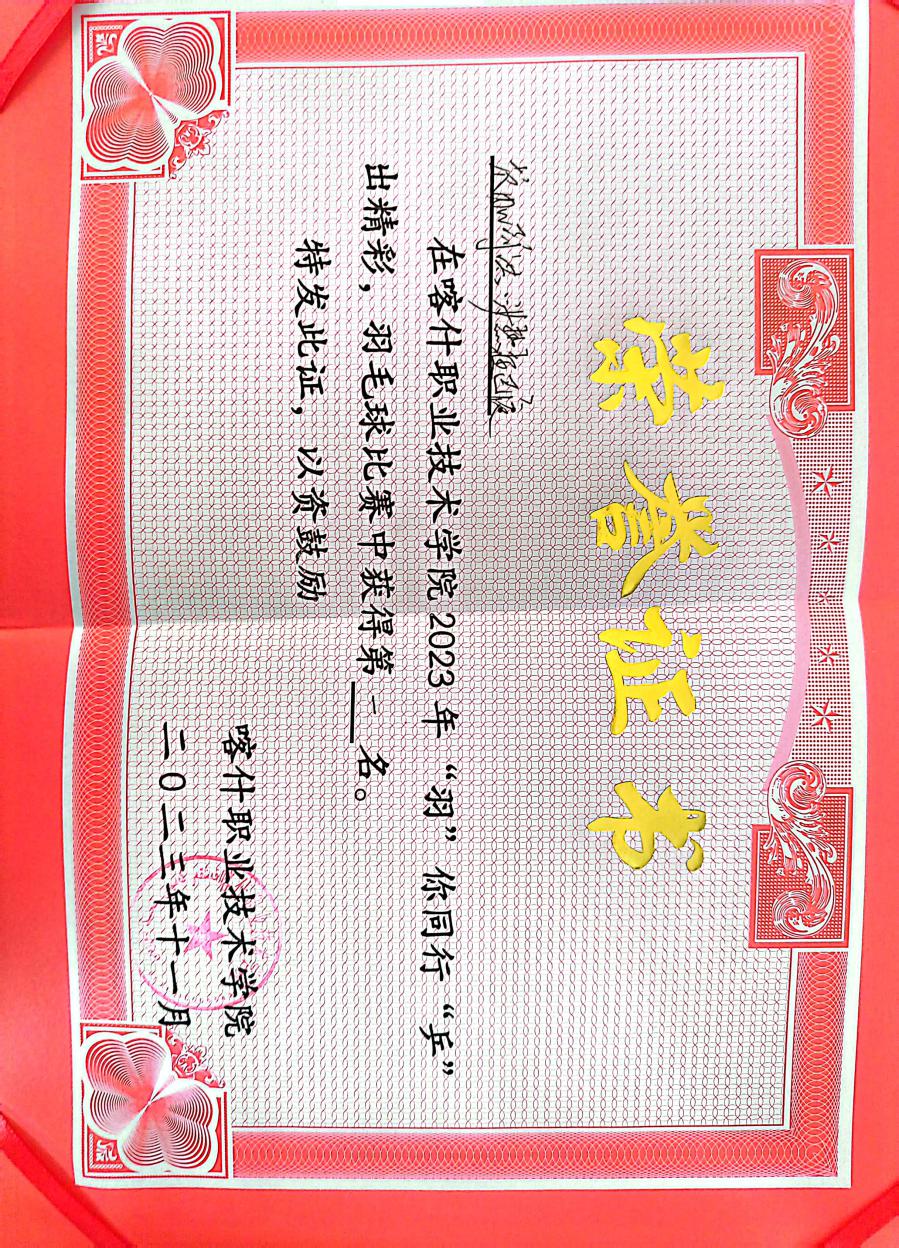 荣誉证书
在喀什职业技术学院2023年“羽”你同行“乒”
出精彩，羽毛球比赛中获得第一名。
特发此证，以资鼓励
喀什职业技术学院
二0二三年十一月